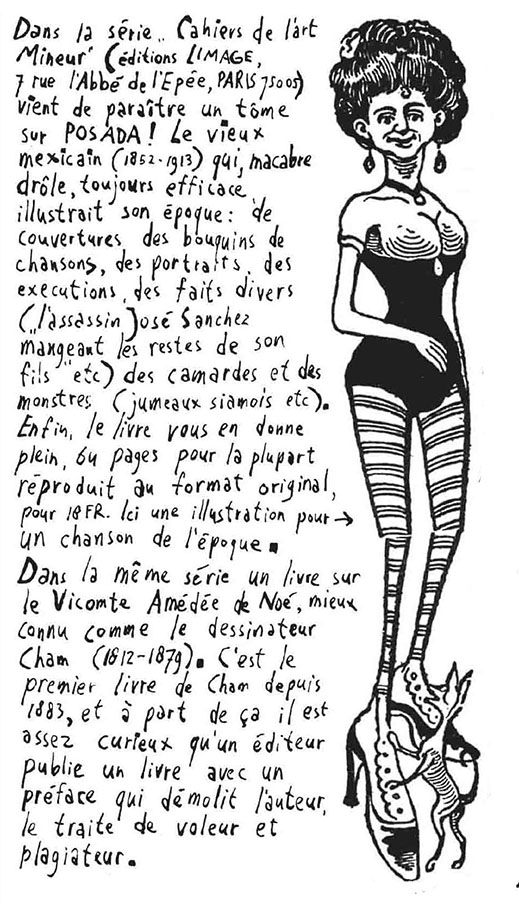 Dans la série „ Cahiers de l'art
Mineur" (éditions LIMAGE,
7 rue l'Abbé de l'Epée, PARIS 75005)
vient de paraître un tôme
sur POSADA! Le vieux
mexicain (1852-1913) qui, macabre
drôle, toujours efficace
illustrait son époque: de
couvertures des bouquins de
chansons, des portraits, des
executions, des faits divers
(„l'assassin José Sanchez
mangeant les restes de son
fils" etc) des camardes et des
monstres (jumeaux siamois etc).
Enfin, le livre vous en donne
plein, 64 pages pour la plupart
réproduit au format original,
pour 18FR. Ici une illustration pour →
un chanson de l'époque.
Dans la même série un livre sur
le Vicomte Amédée de Noé, mieux
connu comme le dessinateur
Cham (1812-1879). C'est le
premier livre de Cham depuis
1883, et à part de ça il est
assez curieux qu'un éditeur
publie un livre avec un
préface qui démolit l'auteur,
le traite de voleur et
plagiateur.